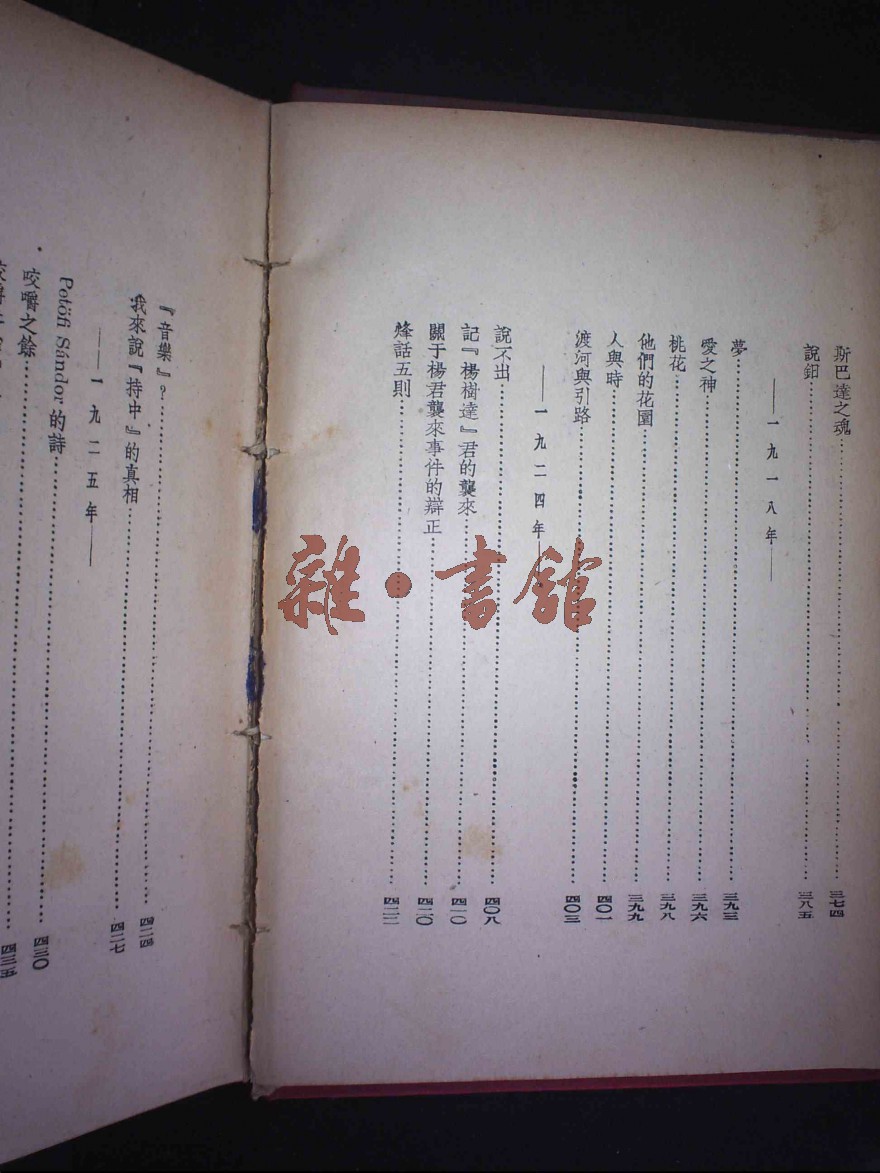 斯巴達之魂 三七四
說鈤 三八五
——一九一八年——
夢 三九三
愛之神 三九六
桃花 三九八
他們的花園 三九九
人與時 四〇一
渡河與引路 四〇三
——一九二四年——
說不出 四〇八
記『楊樹達』君的襲來 四一〇
關于楊君襲來事件的辯正 四二〇
烽話五則 四二二
『音樂』? 四二四
我來說『持中』的真相 四二七
——一九二五年——
Potöfi Sándor 的詩
咬嚼之餘 四三〇
四三五
雜·書館